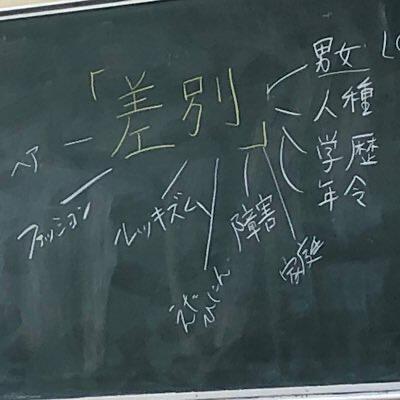 「差別」
男女 L
人種
学歴
年令
ヘア
ファッション
ルッキズム
障害
家庭